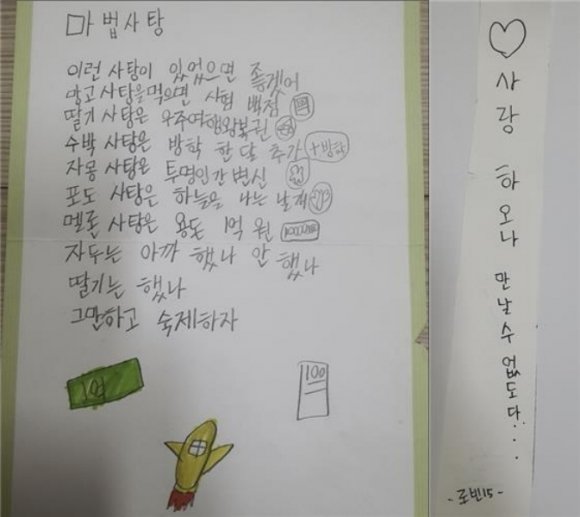 마법사탕
이런 사탕이 있었으면 좋겠어
망고사탕을 먹으면 시험 백점
딸기사탕은 우주여행왕복권
수박 사탕은 방학 한 달 추가 +방학
자몽 사탕은 투명인간 변신
포도 사탕은 하늘을 나는 날개
멜론 사탕은 용돈 1억 원
자두는 아까 했나 안 했나
딸기는 했나
그만하고 숙제하자
1억
100
사랑 하오나 만날 수 없도다...
-로빈15-